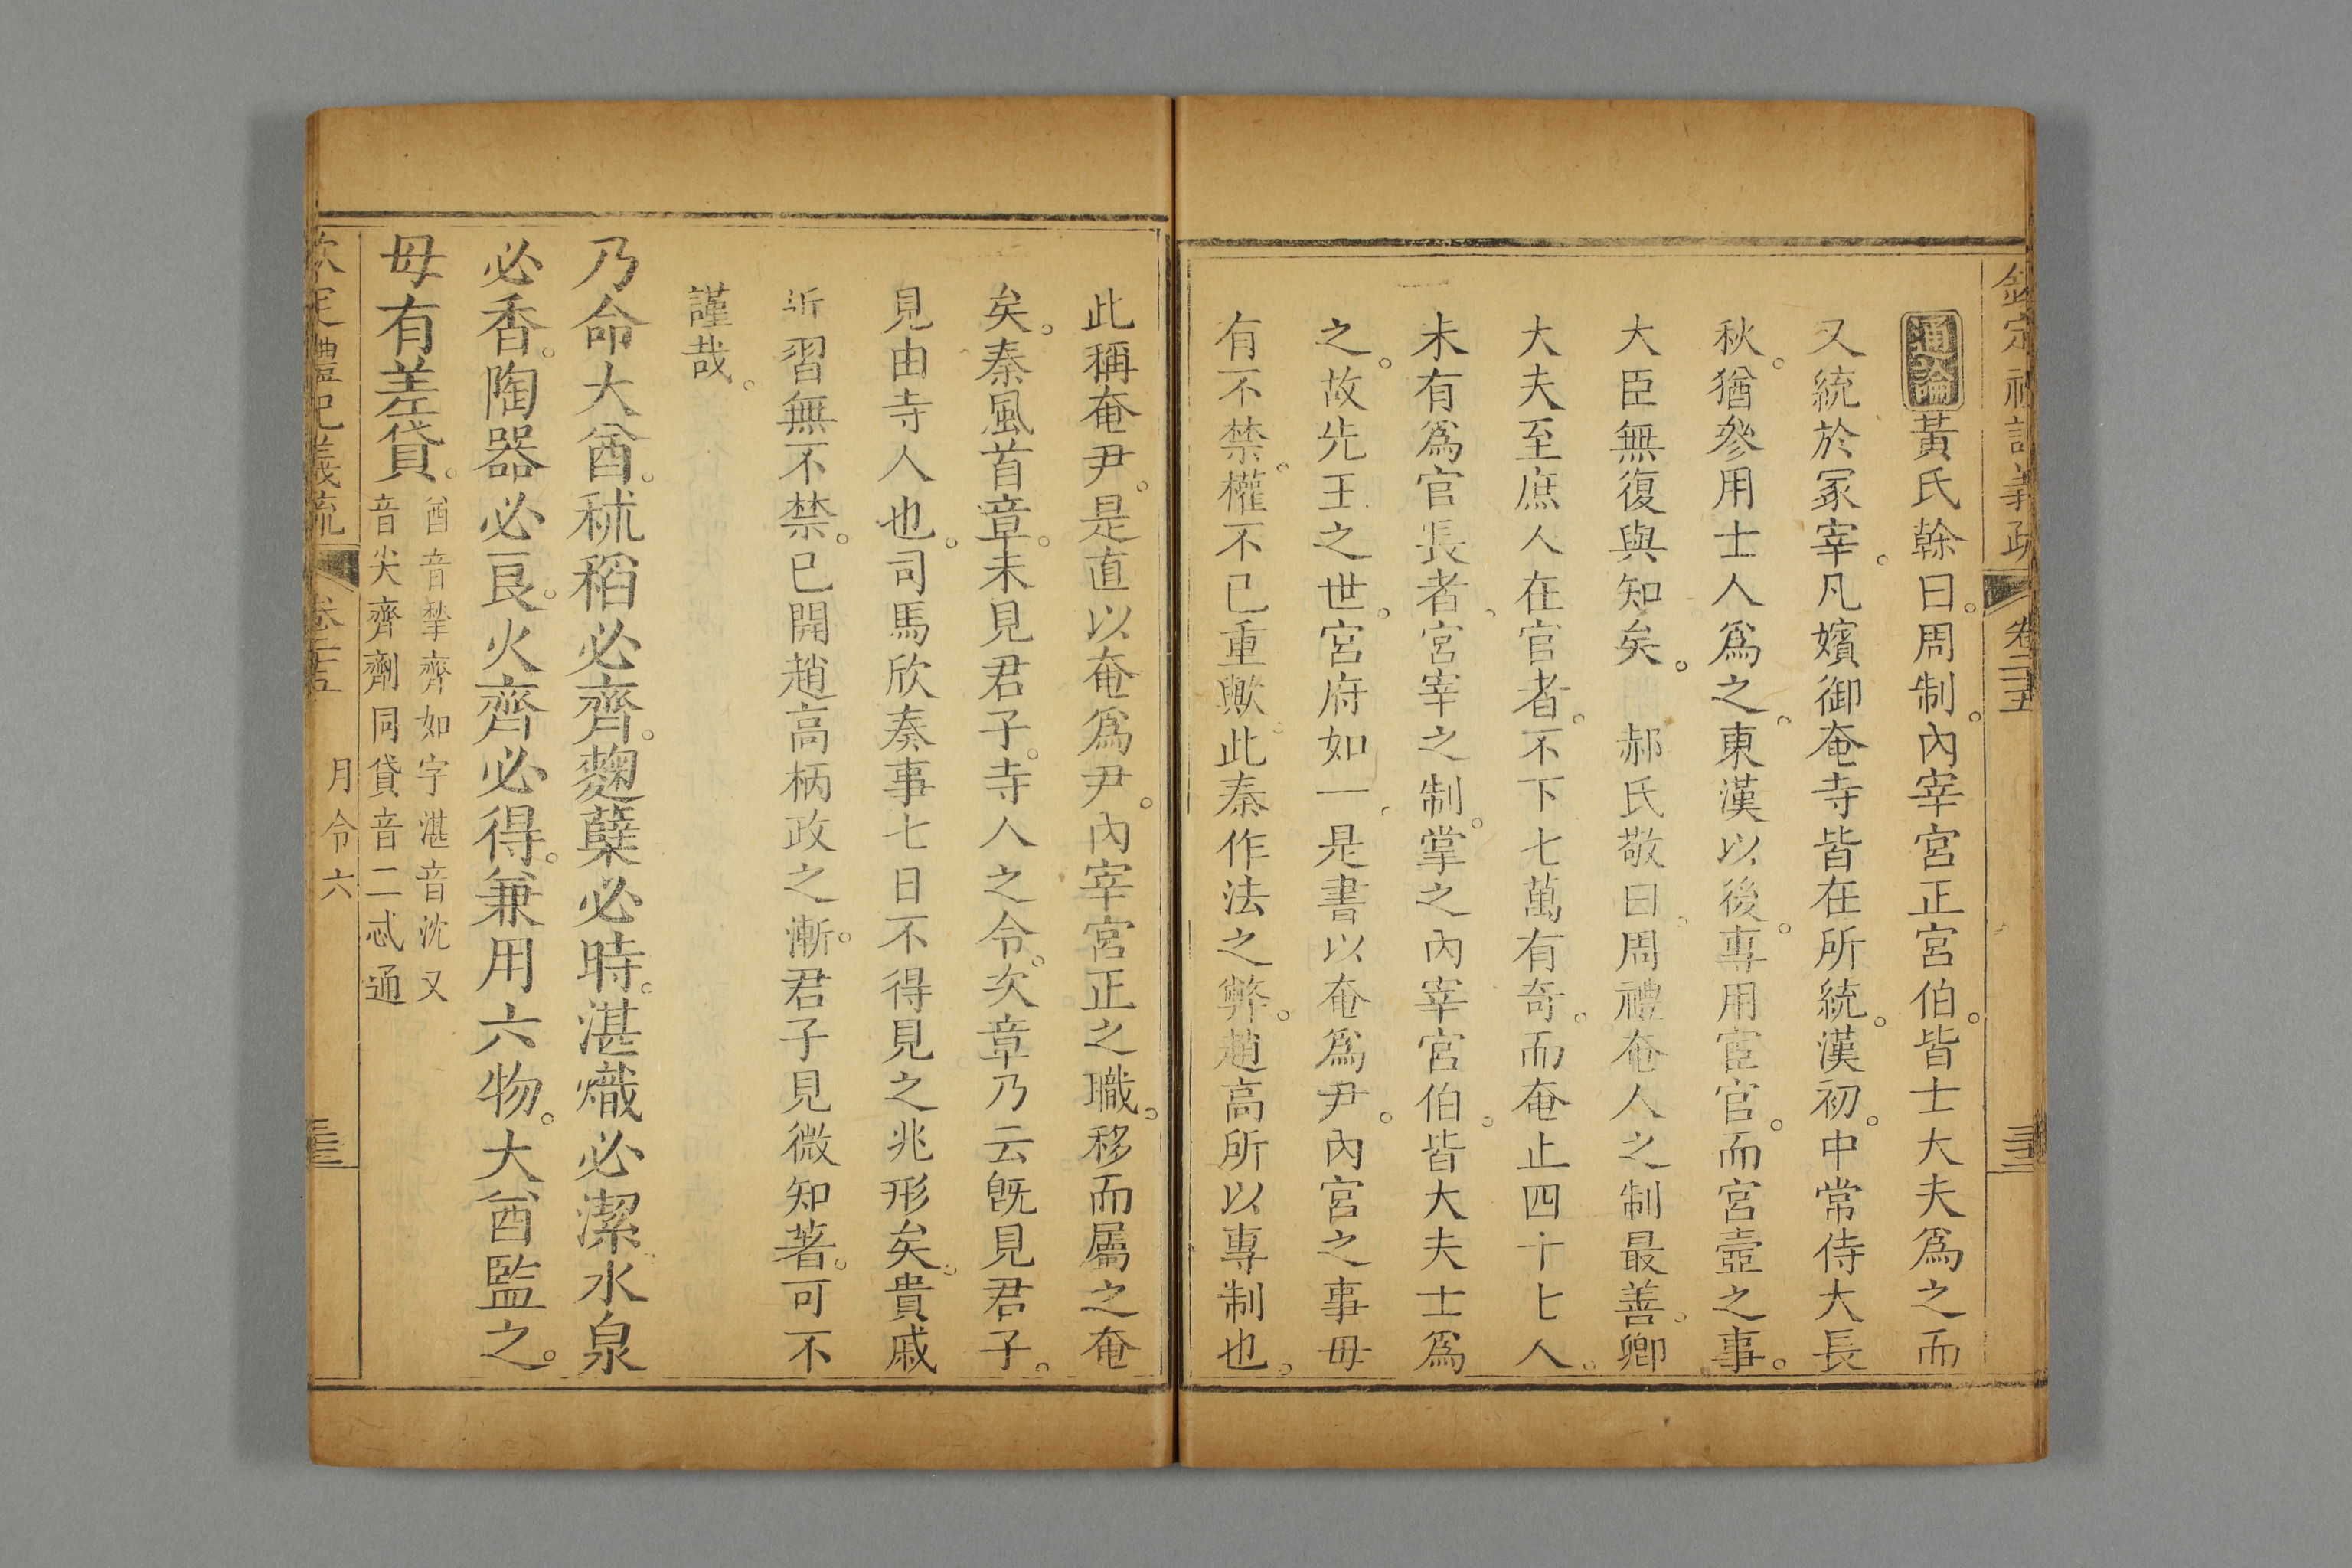 欽定禮記義疏 卷二十五
通論 黃氏榦曰。周制。內宰宮正宮伯。皆士大夫爲之而
又統於冢宰。凡嬪御奄寺皆在所統。漢初。中常侍大長
秋。猶參用士人爲之。東漢以後。專用宦官。而宮壼之事。
大臣無復與知矣。 郝氏敬曰。周禮奄人之制最善。卿
大夫至庶人在官者。不下七萬有奇。而奄止四十七人。
未有爲官長者。宮宰之制。掌之內宰宮伯。皆大夫士爲
之。故先王之世。宮府如一。是書以奄爲尹。內宮之事毋
有不禁。權不已重歟。此秦作法之弊。趙高所以專制也。
此稱奄尹。是直以奄爲尹。內宰宮正之職。移而屬之奄
矣。秦風首章。未見君子。寺人之令。次章乃云旣見君子。
見由寺人也。司馬欣奏事七日不得見之兆形矣。貴戚
近習無不禁。已開趙高柄政之漸。君子見微知著。可不
謹哉。
乃命大酋。秫稻必齊。麴蘖必時。湛熾必潔水泉
必香。陶器必良。火齊必得。兼用六物。大酋監之。
毋有差貸。
酋音揫齊如字湛音沈又
音尖齊劑同貸音二忒通
欽定禮記義疏 卷二十五 月令六